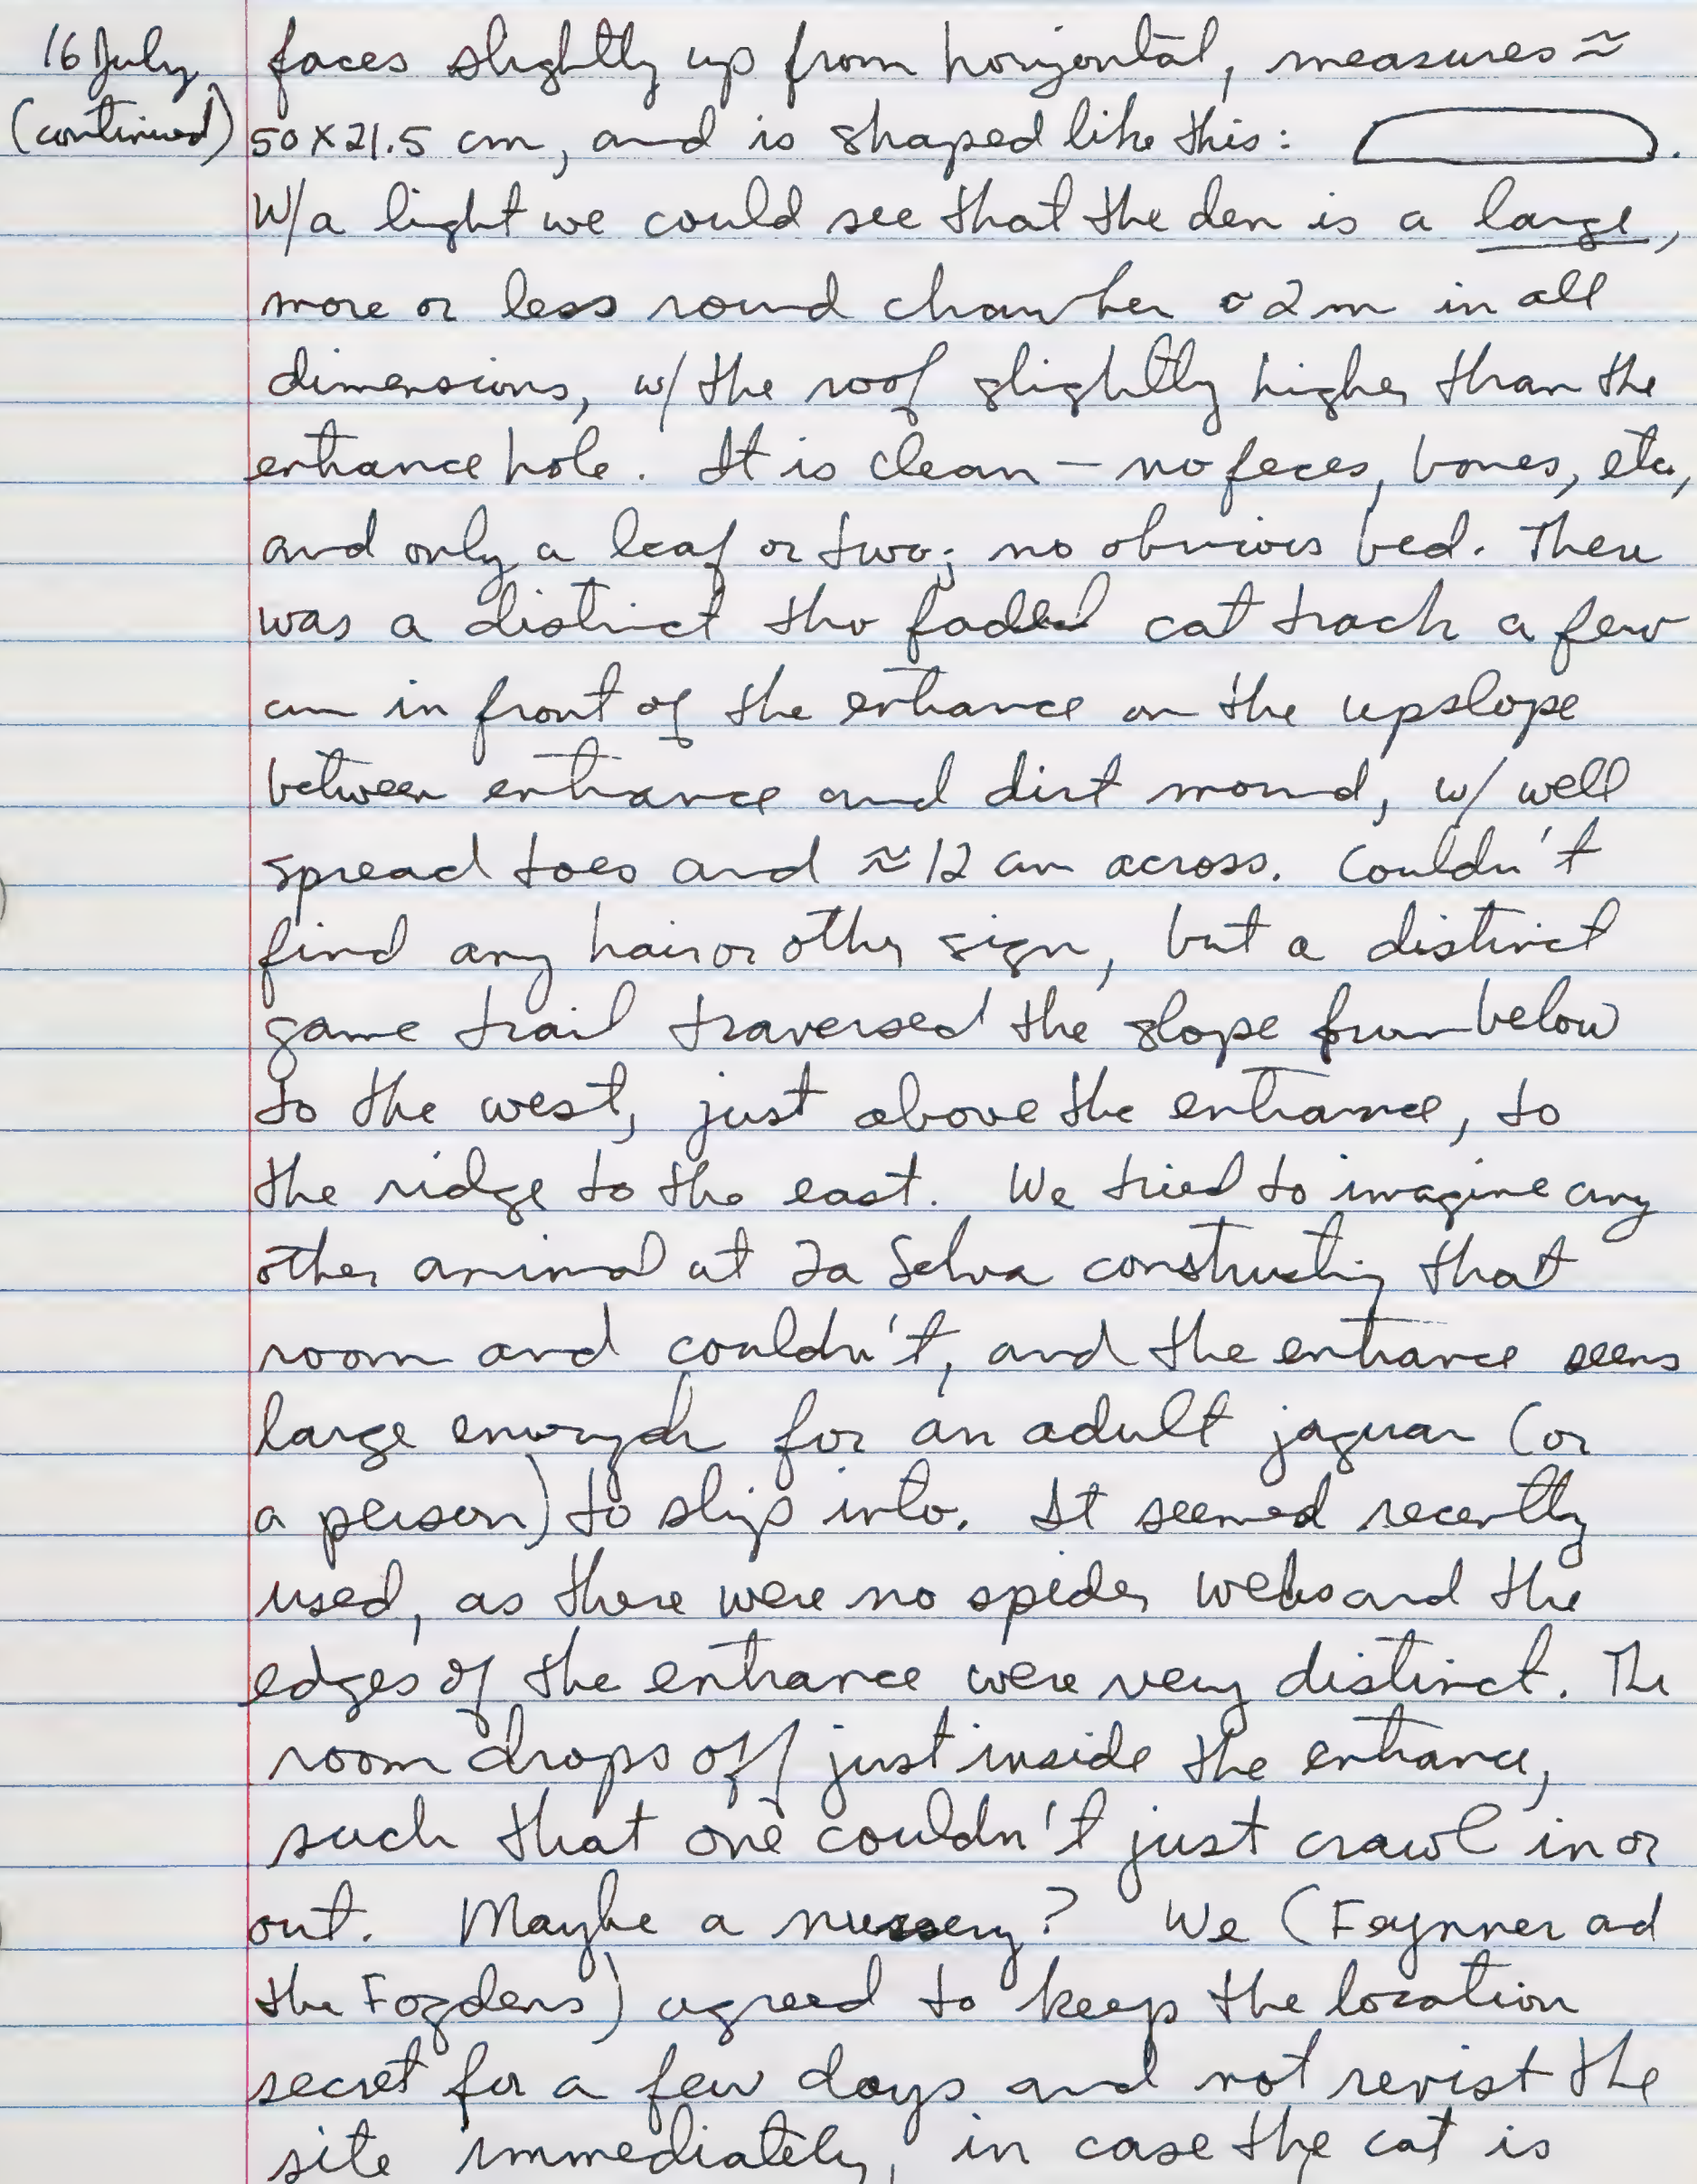 16 July
(continued)
faces slightly up from horizontal, measures ≈
50 X 21.5 cm, and is shaped like this:
W/a light we could see that the den is a large,
more or less round chamber 2m in all
dimensions, w/ the roof slightly higher than the
entrance hole. It is clean — no feces, bones, etc,
and only a leaf or two; no obvious bed. There
was a distinct tho faded cat track a few
cm in front of the entrance on the upslope
between entrance and dirt mound, w/ well
spread toes and ≈ 12 cm across. Couldn't
find any hair or other sign, but a distinct
game trail traversed the slope from below
to the west, just above the entrance, to
the ridge to the east. We tried to imagine any
other animal at La Selva constructing that
room and couldn't, and the entrance seems
large enough for an adult jaguar (or
a person) to slip into. It seemed recently
used, as there were no spider webs and the
edges of the entrance were very distinct. The
room drops off just inside the entrance,
such that one couldn't just crawl in or
out. Maybe a nursery? We (Feynner ad
the Fogdens) agreed to keep the location
secret for a few days and not revist the
site immediately, in case the cat is